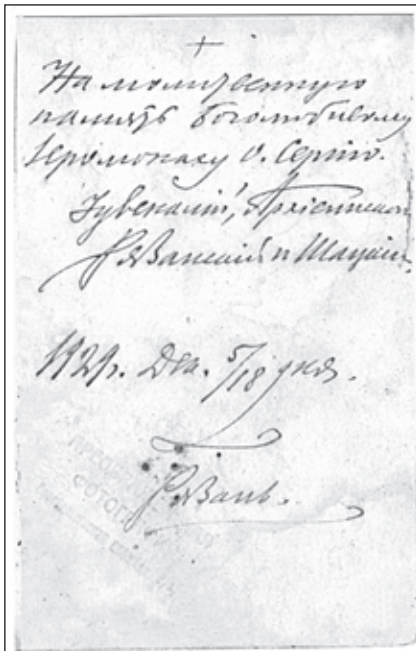 +
На молитвенную
память боголюбивому
Иеромонаху О. Сергию.
Iувеналий, Архиепископ
Рязанский и Шацкий.
1929г. Дек. 5/18 дня.
Рязань.
ФОТОГРАФ